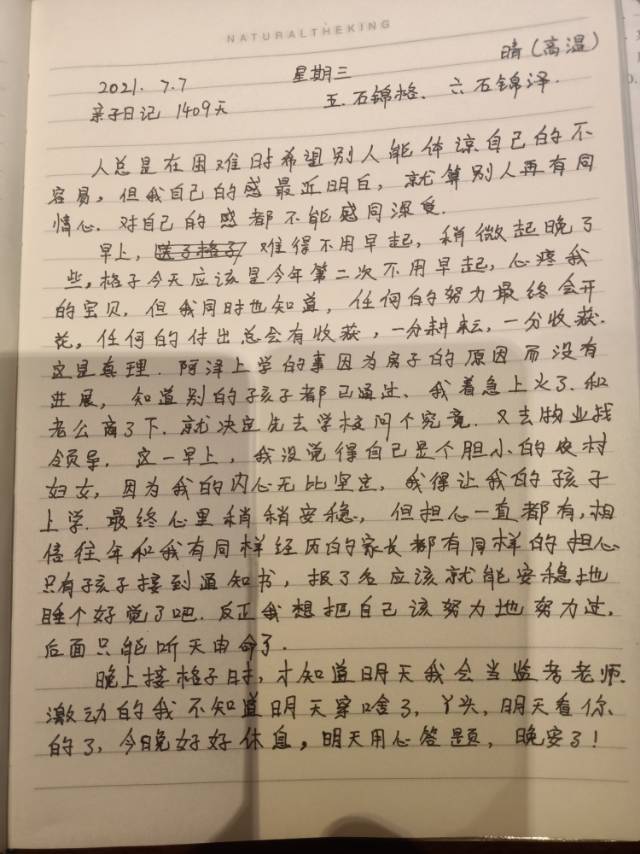 NATURALTHEKING
2021. 7.7 星期三 晴(高温)
亲子日记 1409天 五.石锦格、六石锦泽.
人总是在困难时希望别人能体谅自己的不
容易,但我自己的感最近明白,就算别人再有同
情心.对自己的感都不能感同深受.
早上,送了格子难得不用早起,稍微起晚了
些,格子今天应该是今年第二次不用早起,心疼我
的宝贝.但我同时也知道,任何的努力最终会开
花,任何的付出总会有收获,一分耕耘,一分收获.
这是真理.阿泽上学的事因为房子的原因而没有
进展,知道别的孩子都已通过、我着急上火了.和
老公商了下.就决定先去学校问个究竟.又去物业找
领导.这一早上,我没觉得自己是个胆小的农村
妇女,因为我的内心无比坚定,我得让我的孩子
上学.最终心里稍稍安稳,但担心一直都有,相
信往年和我有同样经历的家长都有同样的担心
只有孩子接到通知书,报了名应该就能安稳地
睡个好觉了吧.反正我想把自己该努力地努力过,
后面只能听天由命了.
晚上接格子时,才知道明天我会当监考老师.
激动的我不知道明天穿啥了,丫头,明天看你
的了,今晚好好休息,明天用心答题,晚安了!